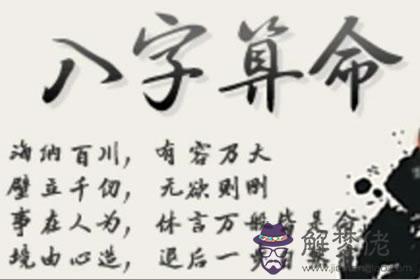 八字算命
海纳百川，有容乃大
壁立千仞，无欲则刚
事在人为，休言万般皆是命
境由心造，退后一步自
解梦佬